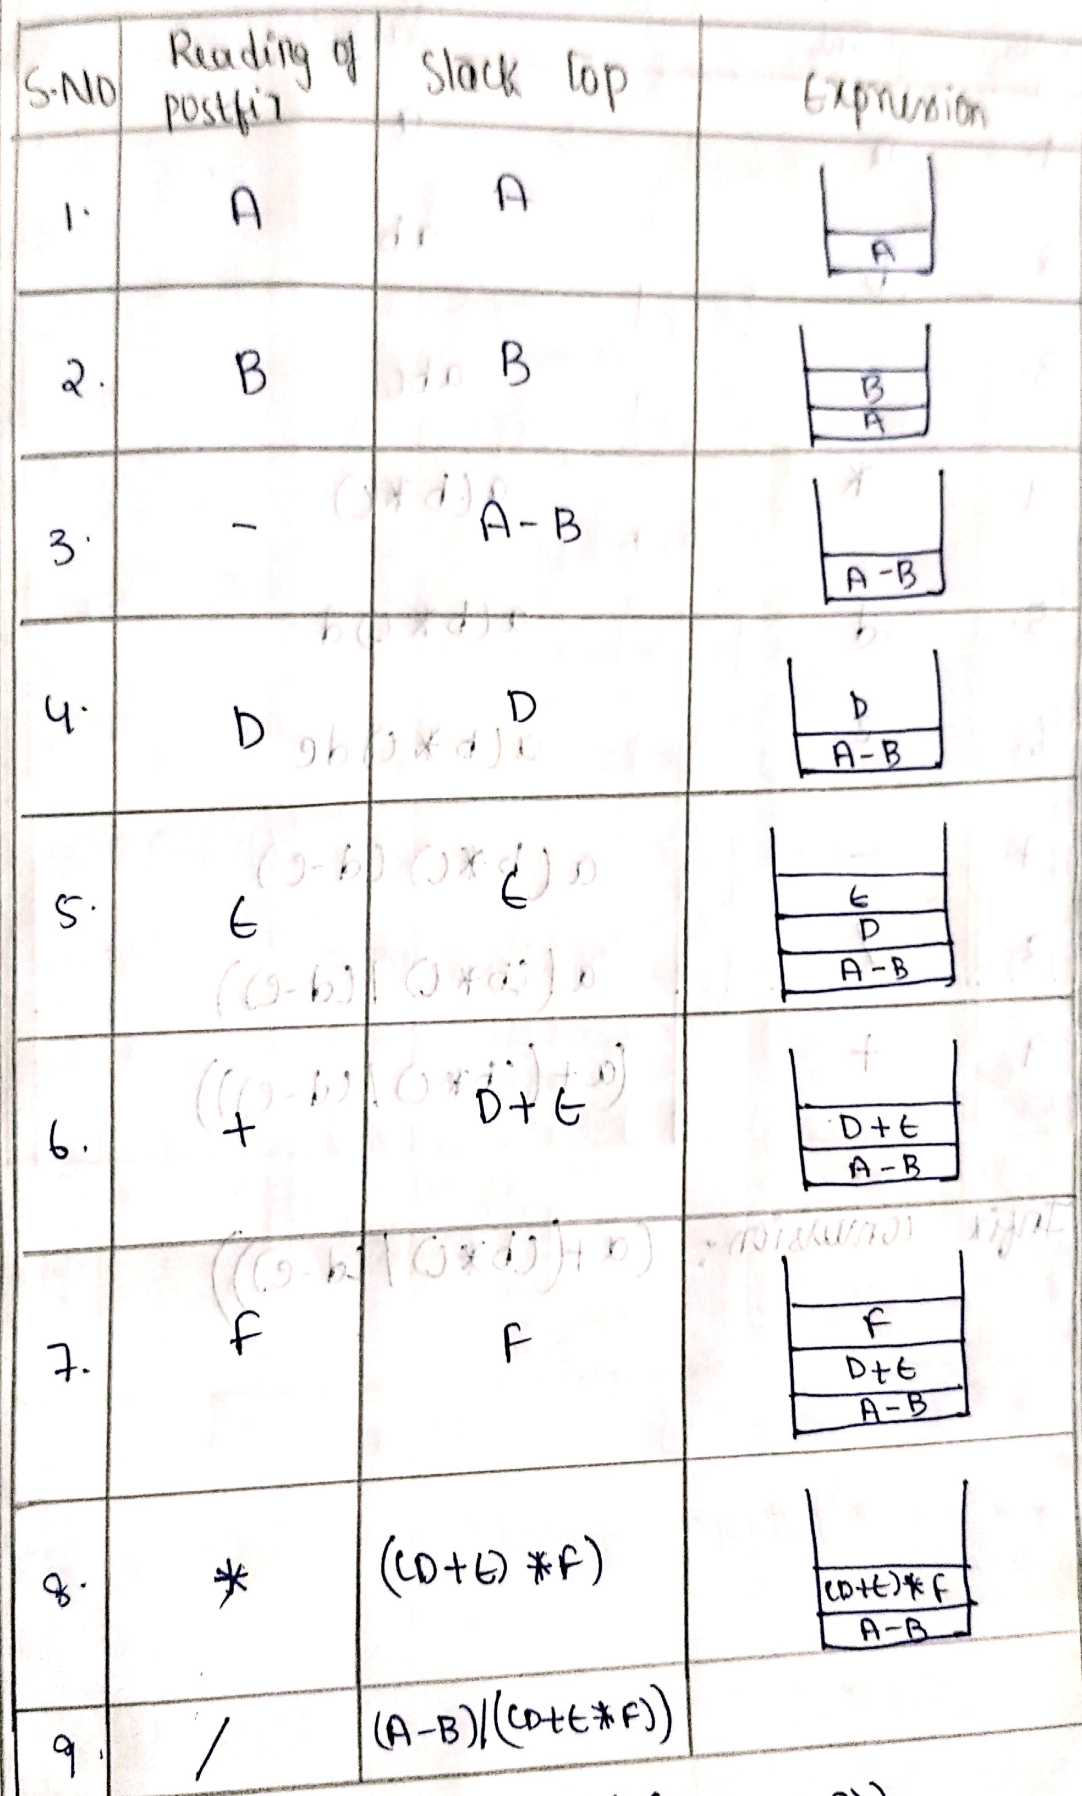 S.NO Reading of postfix Stack top Expression
1. A A
A
2. B B
B
A
3. - A-B
A-B
4. D D
D
A-B
5. E E
E
D
A-B
6. + D+E
D+E
A-B
7. F F
F
D+E
A-B
8. * ((D+E) *F)
(D+E)*F
A-B
9. / (A-B)/((D+E*F))